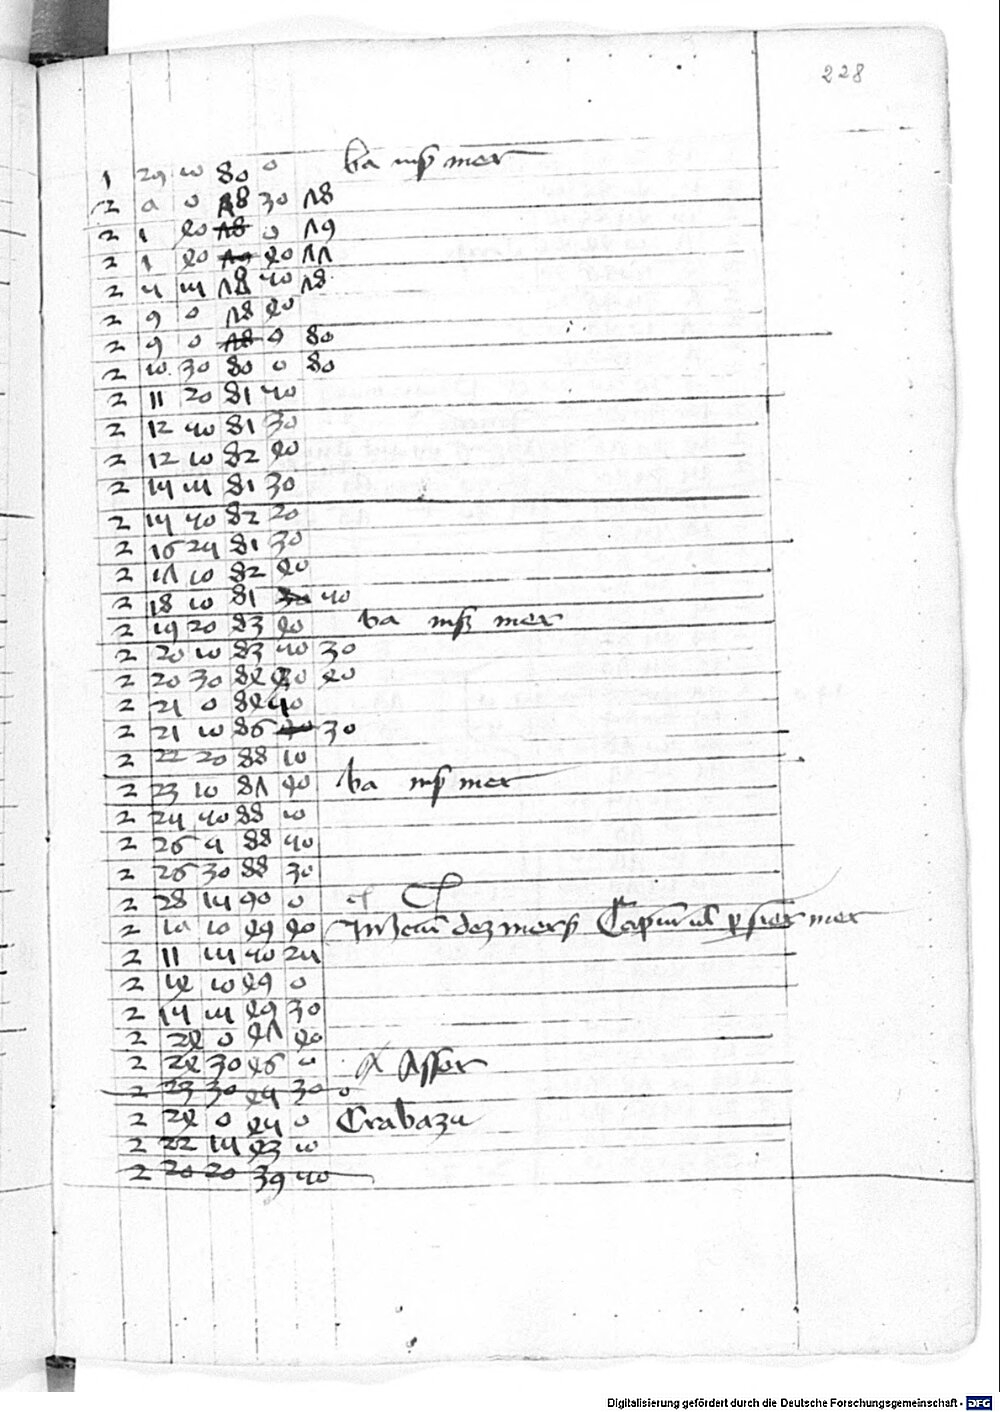 228
1 29 10 80 0 ba insꝑ mer
2 0 0 78 30 78
2 1 40 78 0 79
2 1 40 79 40 77
2 4 14 78 40 78
2 9 0 78 40
2 9 0 78 0 80
2 10 30 80 0 80
2 11 20 81 40
2 12 40 81 30
2 12 10 82 40
2 14 14 81 30
2 14 40 82 20
2 16 24 81 30
2 17 10 82 40
2 18 10 81 40
2 19 20 83 40 ba insꝑ mer
2 20 10 83 40 30
2 20 30 84 40
2 21 0 84 40
2 21 10 86 30
2 22 20 88 10
2 23 10 87 40 ba insꝑ mer
2 24 40 88 10
2 26 4 88 40
2 26 30 88 30
2 28 14 90 0
2 10 10 49 40 mer
2 11 14 40 24
2 14 10 49 0
2 14 14 49 30
2 24 0 47 40
2 24 30 46 0 Assor
2 23 30 44 30 0
2 24 0 44 0 Crabazu
2 22 14 43 10
2 20 20 39 40
Digitalisierung gefördert durch die Deutsche Forschungsgemeinschaft - DFG